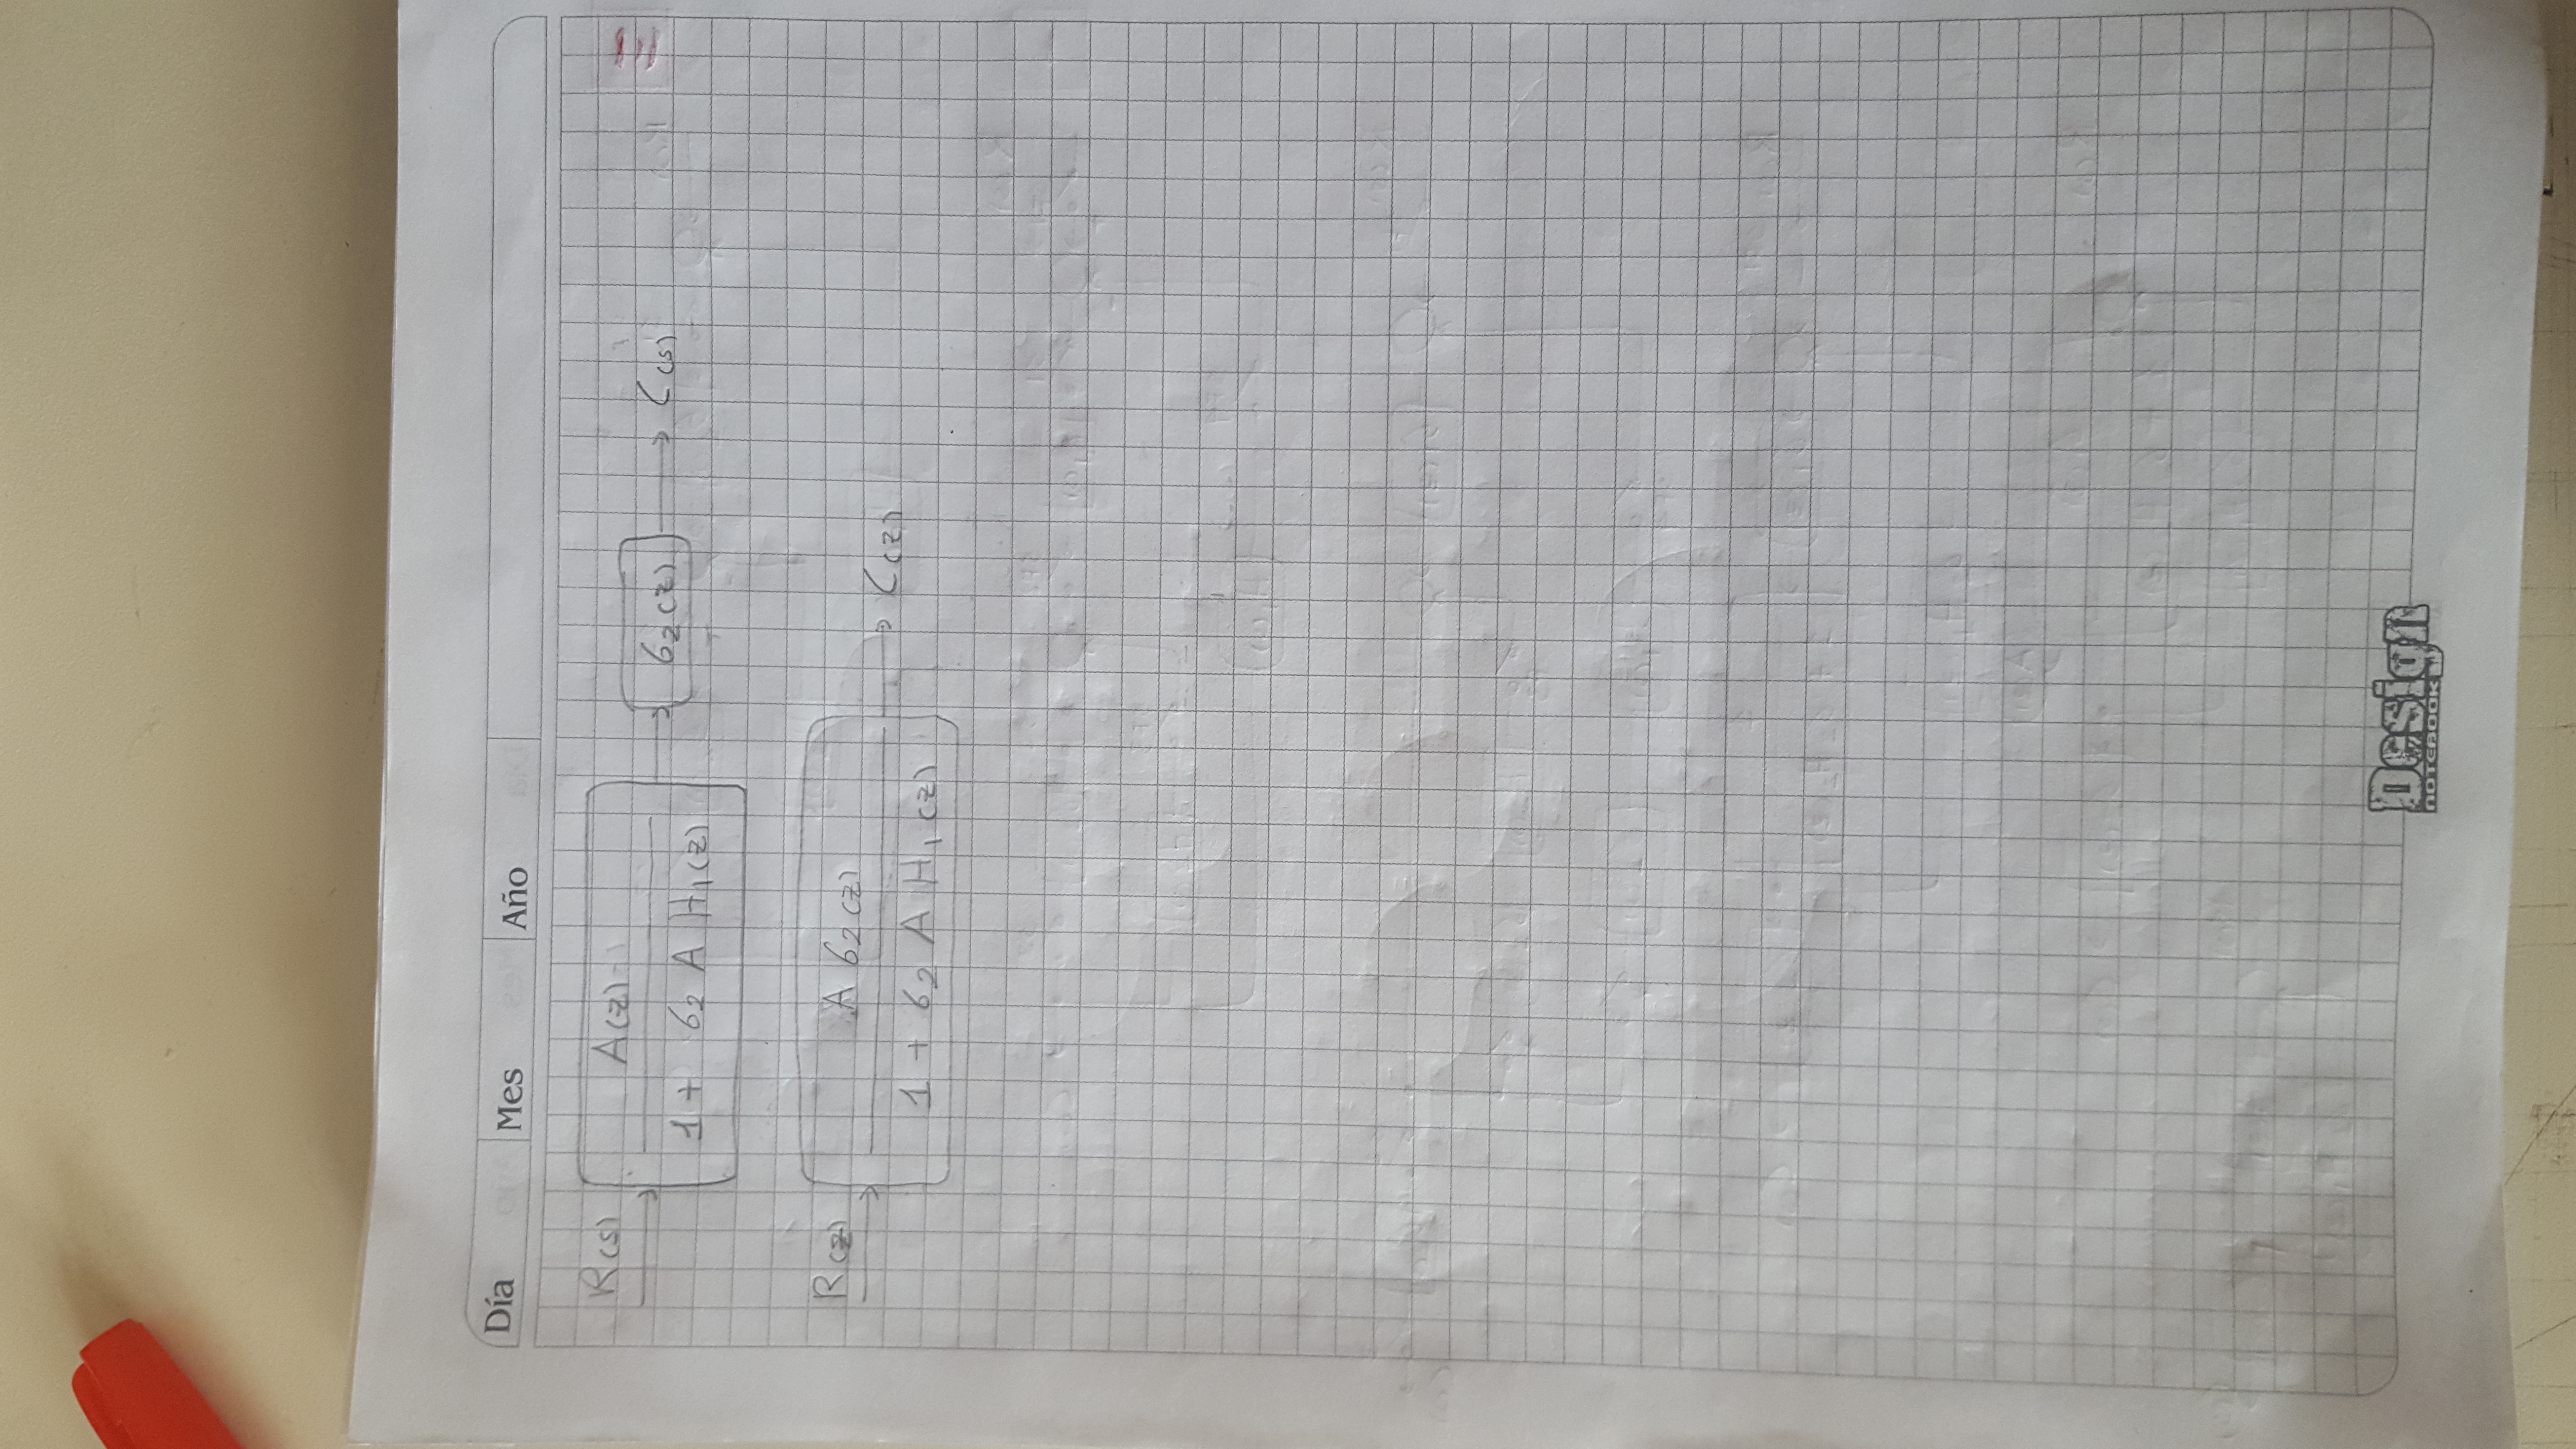 Día Mes Año
R(s) A(z) / 1 + G2 A H1(z) → G2(z) → C(s)
R(z) A G2(z) / 1 + G2 A H1(z) → C(z)
Design
NOTEBOOK